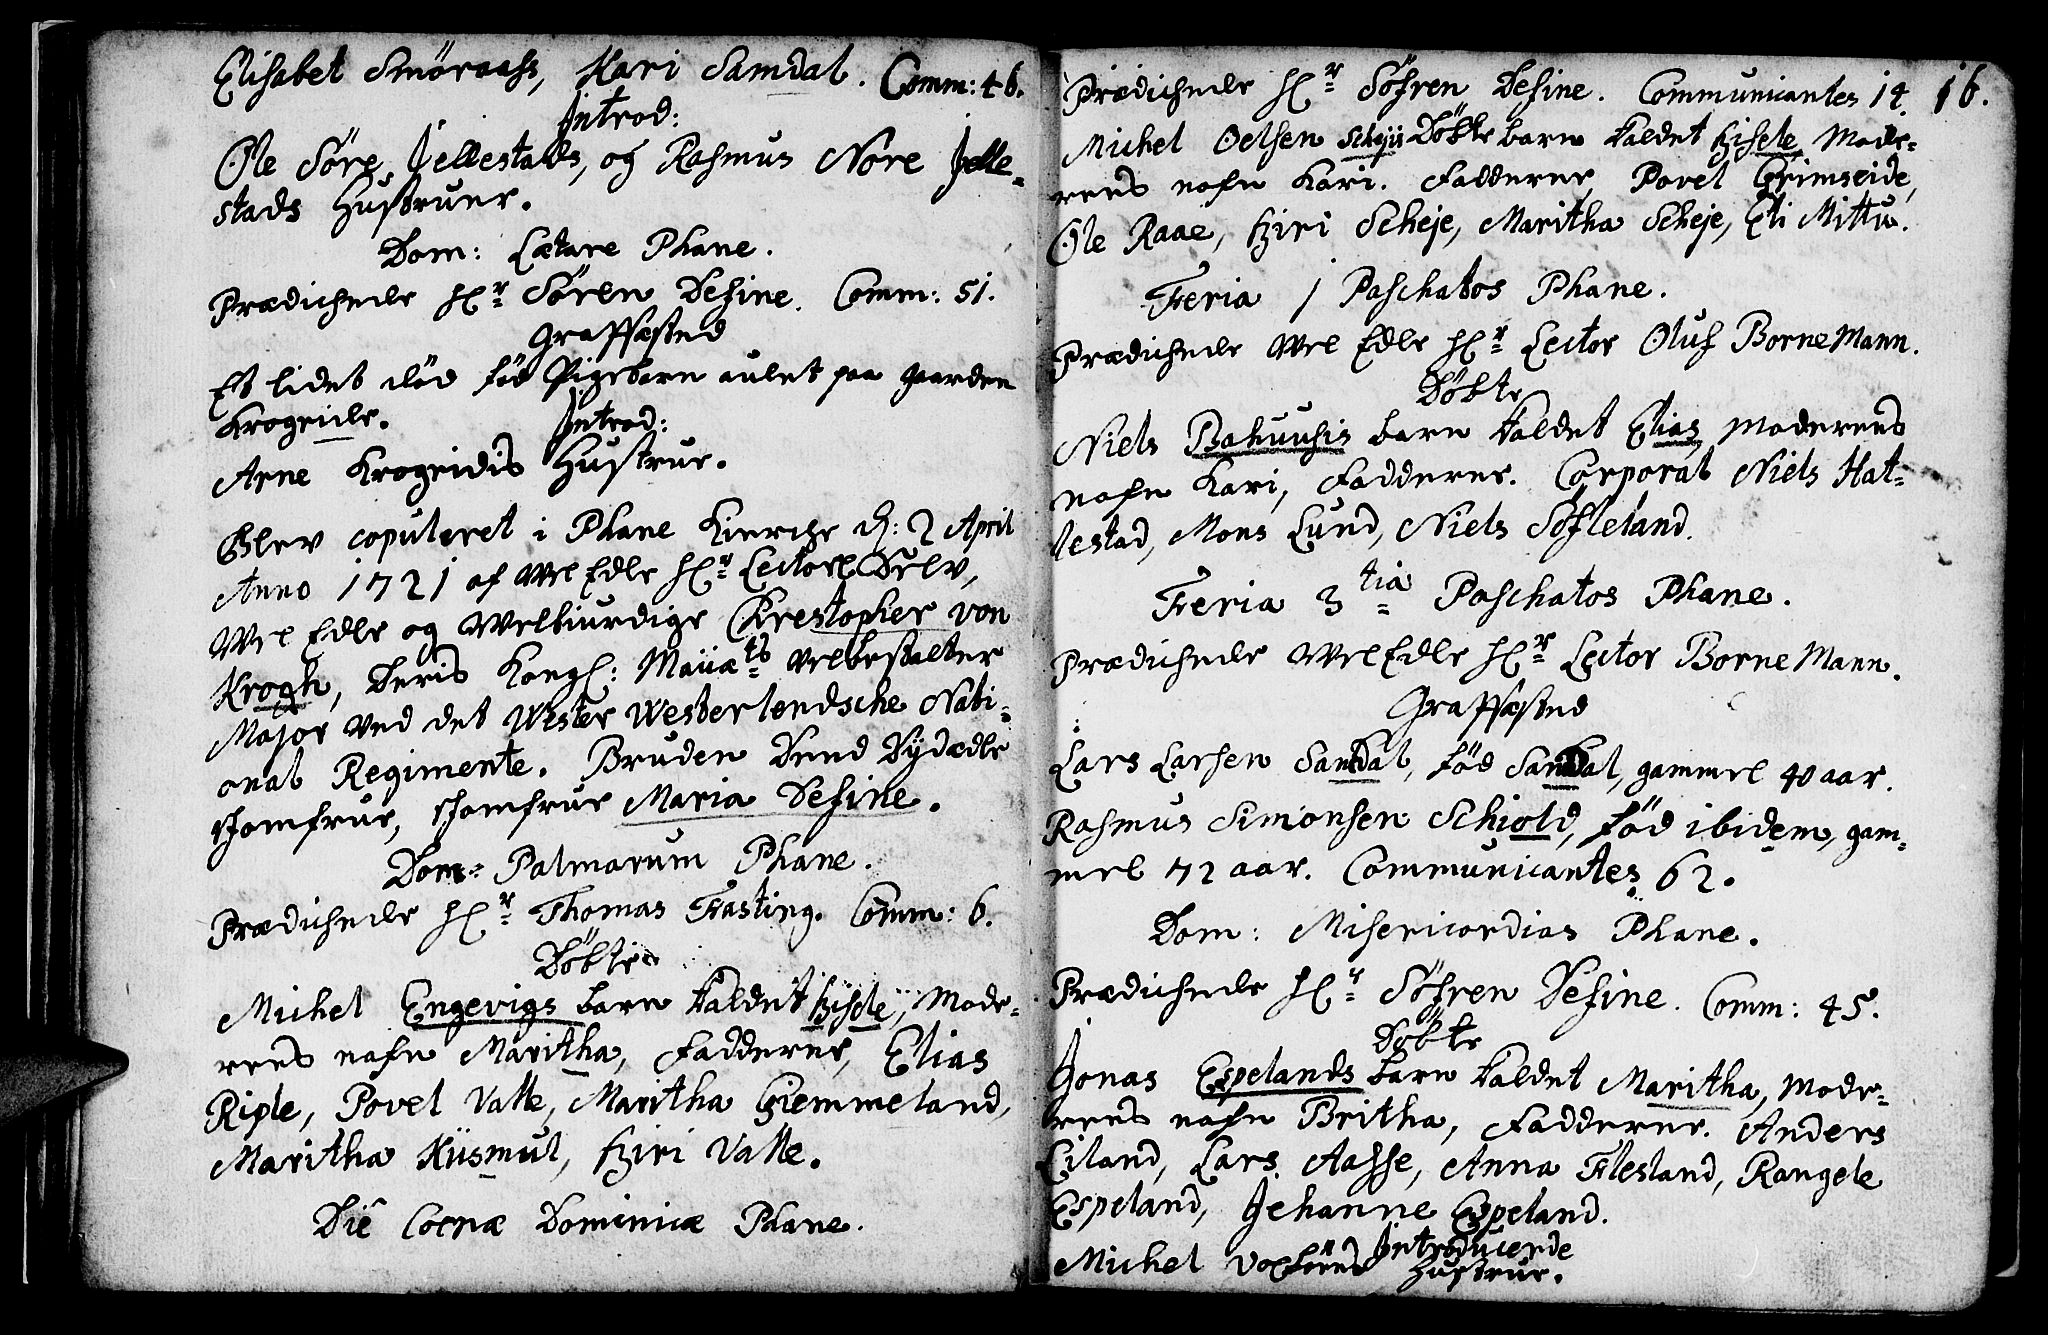 Elisabet Smøraass, Kari Samdal. Comm: 46.
Introd:
Ole Søre Jellestads, og Rasmus Nore Jelle-
stads Hustruer.
Dom: Lætare Phane.
Prædichede Hr Søren Define. Comm: 51.
Graffæsted
Et lidet død fød Pigebarn aulet paa gaarden
Krogeide.
Introd:
Arne Krogeidis Hustrue.
Blev copuleret i Phane Kierche d: 2 April
Anno 1721 af Wel Edle Hr Lector Selv,
Wel Edle og Welbiurdige Chrestopher von
Krogh, Deris Kongl: Maiiæts velbestalter
Major ved det Wester Westerlendsche Nati-
onal Regimente. Bruden Dend Dydædle
Jomfrue, Jomfrue Maria Define.
Dom: Palmarum Phane.
Prædichede Hr Thomas Frasting. Comm: 6.
Døbte
Michel Engevigs barn kaldet Gisele, Mode-
rens nafn Maritha, Fadderne, Elias
Riple, Povel Valle, Maritha Giemmeland,
Maritha Kiismul, Giri Valle.
Die Coenæ Dominicæ Phane.
16.
Prædichede Hr Søfren Define. Communicantes 14
Michel Oelsen Scheje Døbte barn kaldet Gisele, Mode-
rens nafn Kari. Fadderne, Povel Grimseide,
Ole Raae, Giri Scheje, Maritha Scheje, Eli Mittu.
Feria 1 Paschatos Phane.
Prædichede Wel Edle Hr Lector Oluf BorneMann.
Døbte
Niels Bahuusis barn kaldet Elias, Moderens
nafn Kari, Fadderne. Corporal Niels Hat-
lestad, Mons Lund, Niels Søfleland.
Feria 3tia Paschatos Phane.
Prædichede Wel Edle Hr Lector BorneMann.
Graffæsted
Lars Larsen Samdal, fød Samdal, gammel 40 aar.
Rasmus Simonsen Schiold, fød ibidem, gam-
mel 72 aar. Communicantes 62.
Dom: Misericordias Phane.
Prædichede Hr Søfren Define. Comm: 45.
Døbte
Jonas Espelands barn kaldet Maritha, Mode-
rens nafn Britha, Fadderne. Anders
Liland, Lars Aasse, Anna Flesland, Rangele
Espeland, Jehanne Espeland.
Introducerde
Michel Hustrue.